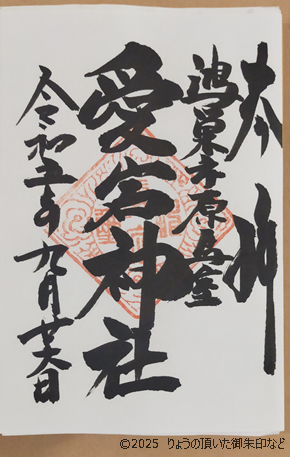 奉拝
鴻巣市原馬室
愛宕神社
令和五年九月廿六日
©2025 りょうの頂いた御朱印など